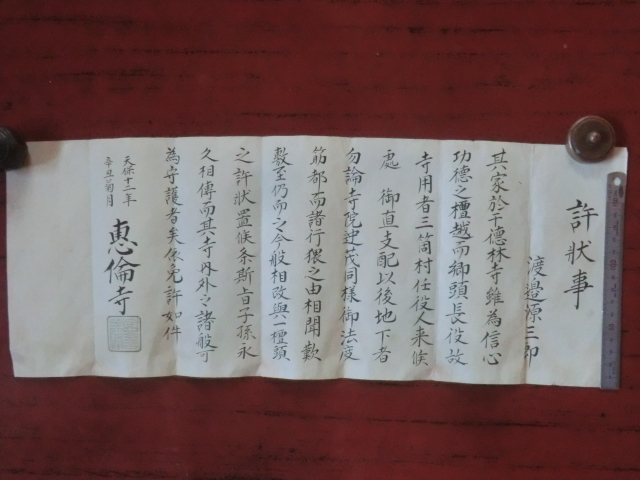 許状事
渡邉源三郎
其家於干德林寺雖為信心
功德之檀越而御頭長役故
寺用者三箇村任役人来候
處 御直支配以後地下者
勿論寺院迚茂同様御法度
筋都而諸行猥之由相聞歎
敷至仍而之今般相改與一檀頭
之許状置候条斯旨子孫永
久相傳而其寺内外之諸般可
為守護者矣依免許如件
天保十二年
辛丑菊月
惠倫寺